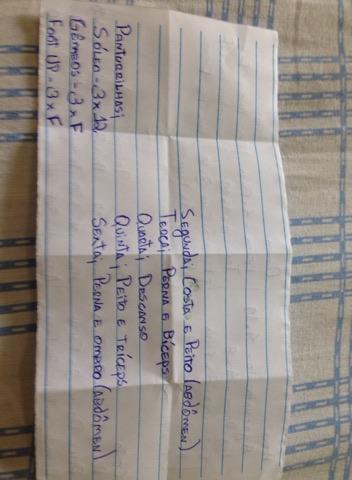 SEGUNDA; COSTA E PEITO (ABDÔMEN)
TERÇA; PERNA E BÍCEPS
QUARTA; DESCANSO
QUINTA; PEITO E TRÍCEPS
SEXTA; PERNA E OMBRO (ABDÔMEN)
PANTURRILHAS;
SÓLEO = 3 x 12
GÊMEOS = 3 x F
UP = 3 x F